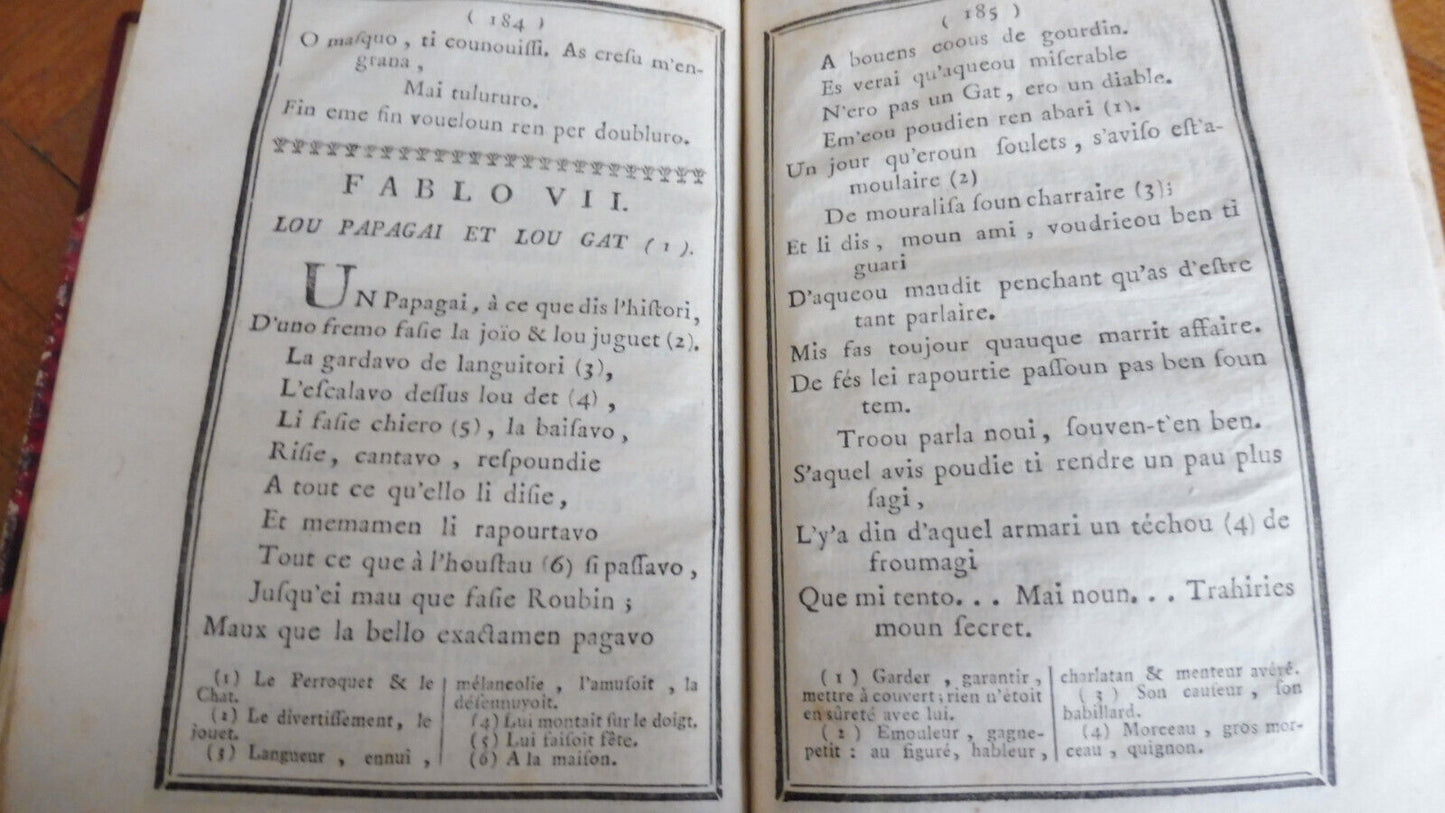 ( 184 )
O maſquo, ti counouiſſi. As creſu m'en-
grana,
Mai tulururo.
Fin eme fin voueloun ren per doubluro.
FABLO VII.
LOU PAPAGAI ET LOU GAT (1).
UN Papagai, à ce que dis l'hiſtori,
D'uno fremo faſie la joïo & lou juguet (2).
La gardavo de languitori (3),
L'eſcalavo deſſus lou det (4),
Li faſie chiero (5), la baiſavo,
Riſie, cantavo, reſpoundie
A tout ce qu'ello li diſie,
Et memamen li rapourtavo
Tout ce que à l'houſtau (6) ſi paſſavo,
Juſqu'ei mau que faſie Roubin;
Maux que la bello exactamen pagavo
(1) Le Perroquet & le
Chat.
(2) Le divertiſſement, le
jouet.
(3) Langueur, ennui,
mélancolie, l'amuſoit, la
déſennuyoit.
(4) Lui montait ſur le doigt.
(5) Lui faiſoit fête.
(6) A la maiſon.
( 185 )
A bouens coous de gourdin.
Es verai qu'aqueou miſerable
N'ero pas un Gat, ero un diable.
Em'eou poudien ren abari (1).
Un jour qu'eroun ſoulets, s'aviſo eſt'a-
moulaire (2)
De mouraliſa ſoun charraire (3);
Et li dis, moun ami, voudrieou ben ti
guari
D'aqueou maudit penchant qu'as d'eſtre
tant parlaire.
Mis fas toujour quauque marrit affaire.
De fés lei rapourtie paſſoun pas ben ſoun
tem.
Troou parla noui, ſouven-t'en ben.
S'aquel avis poudie ti rendre un pau plus
ſagi,
L'y'a din d'aquel armari un téchou (4) de
froumagi
Que mi tento... Mai noun... Trahiries
moun ſecret.
(1) Garder, garantir,
mettre à couvert; rien n'étoit
en sûreté avec lui.
(2) Emouleur, gagne-
petit : au figuré, hableur,
charlatan & menteur avéré.
(3) Son cauſeur, ſon
babillard.
(4) Morceau, gros mor-
ceau, quignon.